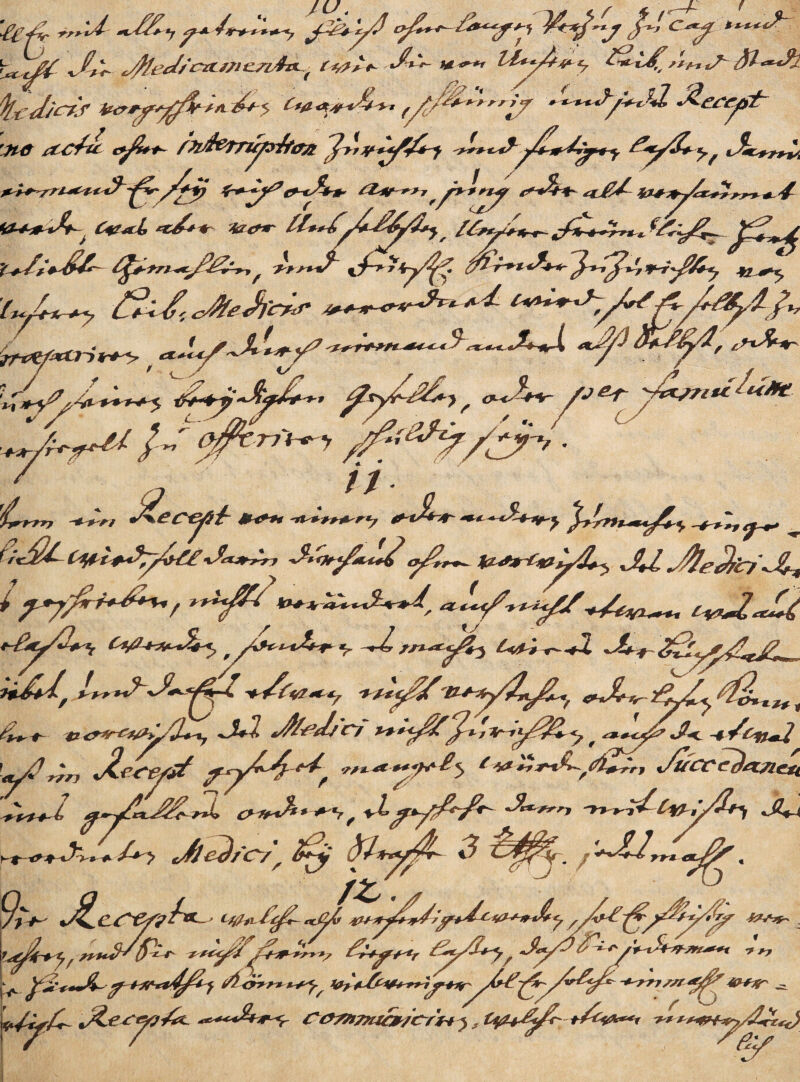 10.
ll Er mit allen getreüen Fleiß ohne langen Verzug zu Tag und
acht die Medicamenta, wie die von Unsern Leib- und Stadt
Medicis vorgeschrieben worden, schleünig und jedes Recept
uno actu ohne interruption zurichten und fertigen laßen, damit
niemand Er sey reich oder arm, jung oder alt versaümet
werde, was aber vor Uns selbsten, Unsere Freündliche Hertz
geliebte Gemahlin, und Fürstl. Kinder zuzurichten von
Unseren Leib-Medicis verordnet wird, sol Er selbst zu
præpariren, auch durch niemand anders alß Selbst, oder
durch seinen beeydigten Gesellen, oder per famulum
versiegelt zu offeriren schuldig seyn.
11.
Wenn ein Recept von einem oder andern zumachen einge-
schickt wird, soll darin durchaus ohne vorwißen des Medici der
s geschrieben, nichts verändert, auch nicht etwan was aus
gelaßen werden, sondern es machen wie es der Buchstabe
giebet, und da Ers etwan nicht verstehen oder lesen Könne
ohne vorwißen des Medici nicht zurichten, auch da etwas
daß im Recept gesetzet, mangeln würde, Kein Succedaneu
eines gefallens ordnen, es geschehe dann mit wißen des
verordneten Medici, bey Straffe 3 Rthlr. jedesmahl.
12.
Die Recepta welche also verfertiget werden, sol Er fleißig ver-
wahren, und Sie nicht herüm liegen laßen, daß Sie jederman in
die Hände gerathen Können, vielweniger sol Er solche einmahl ver-
fertigte Recepta andern communiciren, welche etwan unverständ
lich